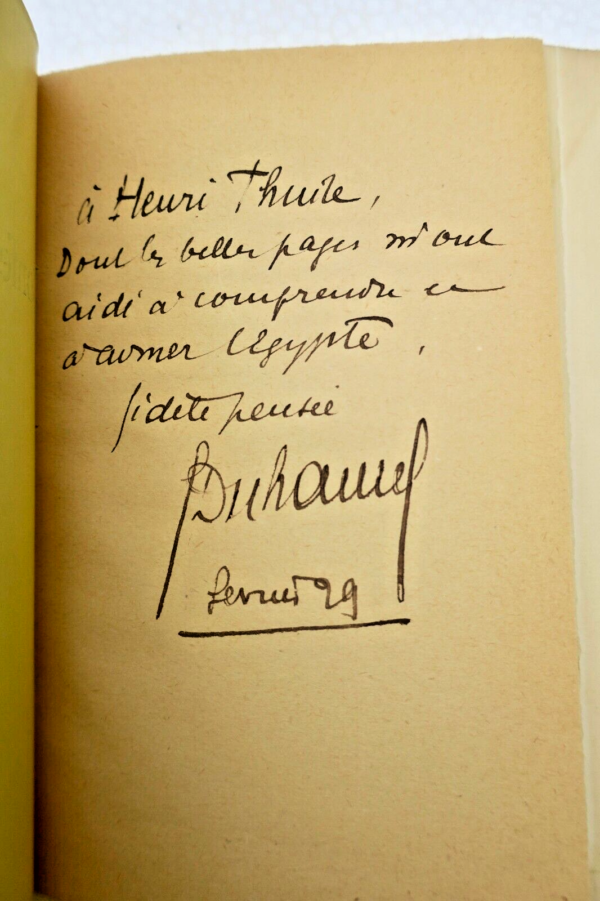 à Henri Thuile,
Dont les belles pages m'ont
aidé à comprendre et
à aimer l'Egypte,
fidèle pensée
Duhamel
fevrier 29